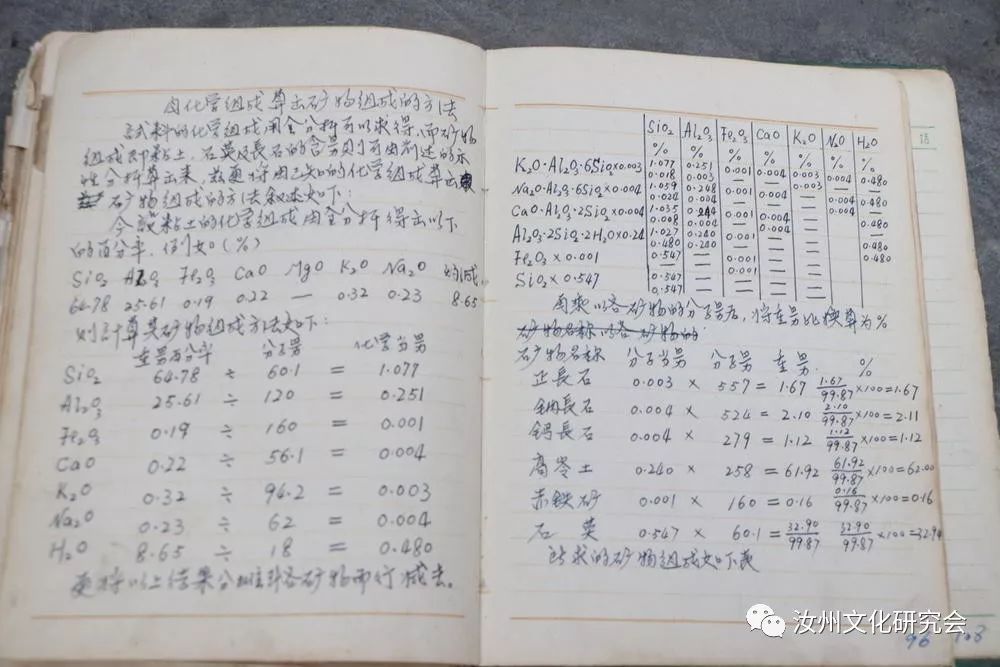 由化学组成算出矿物组成的方法
试料的化学组成用全分析可以求得,而矿物
组成即粘土,石英及長石的含量则可由前述的示
性分析算出来,兹更将由上知的化学组成算出
矿物组成的方法叙述如下:
今设粘土的化学组成用全分析得出以下
的百分率,例如(%)
SiO₂ Al₂O₃ Fe₂O₃ CaO MgO K₂O Na₂O 灼减
64.78 25.61 0.19 0.22 — 0.32 0.23 8.65
则計算其矿物组成方法如下:
重量百分率 分子量 化学当量
SiO₂ 64.78 ÷ 60.1 = 1.077
Al₂O₃ 25.61 ÷ 120 = 0.251
Fe₂O₃ 0.19 ÷ 160 = 0.001
CaO 0.22 ÷ 56.1 = 0.004
K₂O 0.32 ÷ 94.2 = 0.003
Na₂O 0.23 ÷ 62 = 0.004
H₂O 8.65 ÷ 18 = 0.480
更将以上结果分配到各矿物而行减去。
SiO₂ Al₂O₃ Fe₂O₃ CaO K₂O Na₂O H₂O
% % % % % % %
1.077 0.251 0.001 0.004 0.003 0.004 0.480
K₂O·Al₂O₃·6SiO₂×0.003 0.018 0.003 — — 0.003 — —
1.059 0.248 0.001 0.004 — 0.004 0.480
Na₂O·Al₂O₃·6SiO₂×0.004 0.024 0.004 — — — 0.004 —
1.035 0.244 0.001 0.004 — — 0.480
CaO·Al₂O₃·2SiO₂×0.004 0.008 0.004 — 0.004 — — —
1.027 0.240 0.001 — — — 0.480
Al₂O₃·2SiO₂·2H₂O×0.24 0.480 0.240 — — — — 0.480
0.547 — 0.001 — — — —
Fe₂O₃×0.001 — — 0.001 — — — —
0.547 — — — — — —
SiO₂×0.547 0.547 — — — — — —
再乘以各矿物的分子量后,将重量比换算为%
矿物名称 分子当量 分子量 重量 %
正長石 0.003 × 557 = 1.67 1.67/99.87 ×100=1.67
钠長石 0.004 × 524 = 2.10 2.10/99.87 ×100=2.11
钙長石 0.004 × 279 = 1.12 1.12/99.87 ×100=1.12
高岺土 0.240 × 258 = 61.92 61.92/99.87 ×100=62.00
赤铁矿 0.001 × 160 = 0.16 0.16/99.87 ×100=0.16
石英 0.547 × 60.1 = 32.90/99.87 32.90/99.87 ×100=32.94
所求的矿物组成如下表
汝州文化研究会
96